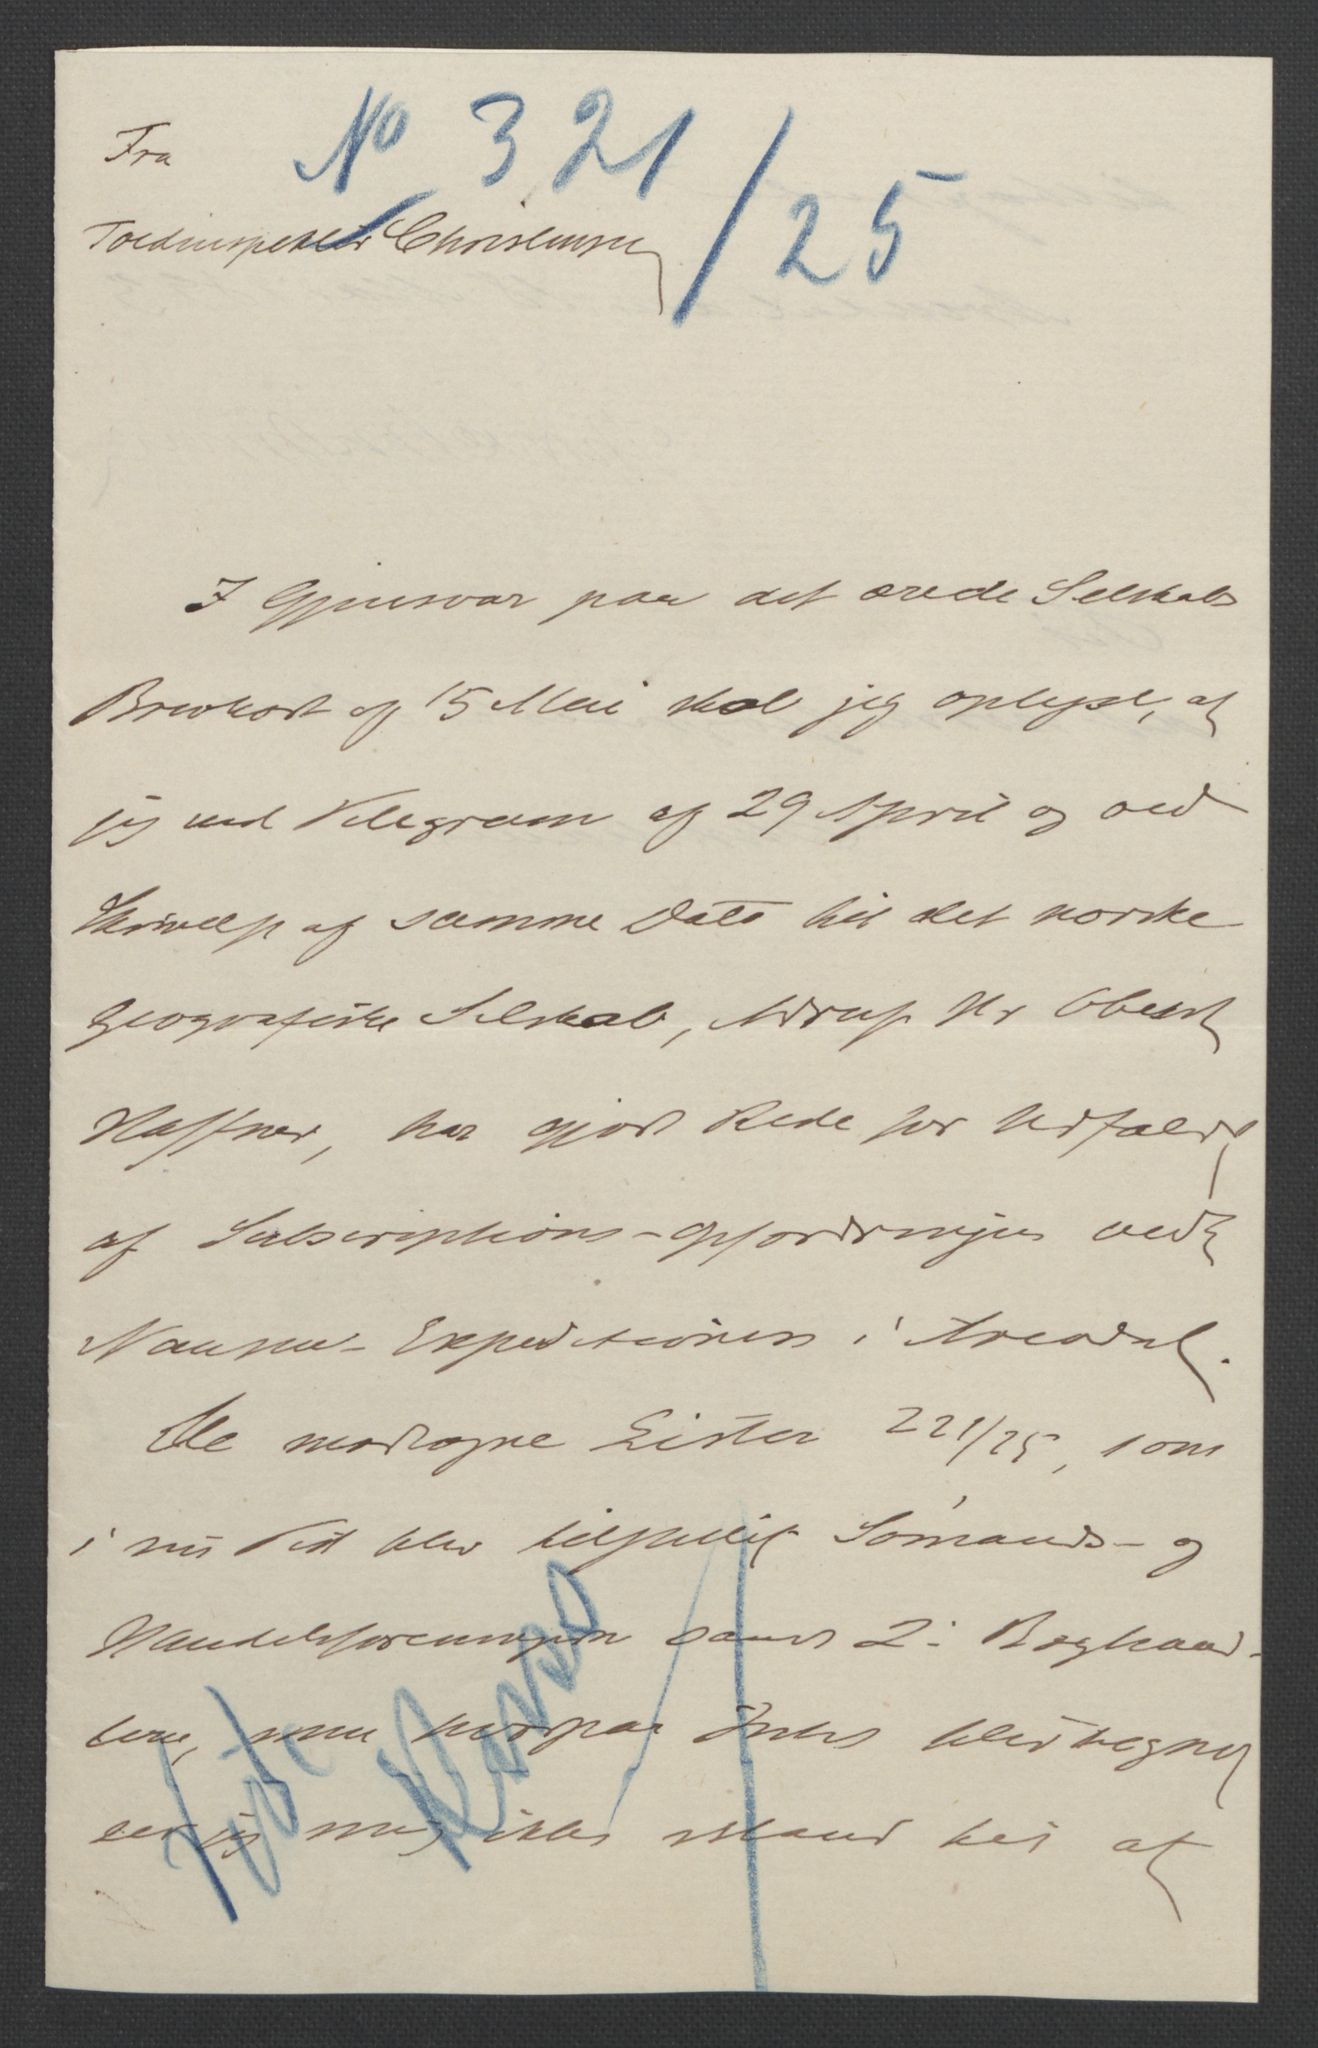 No 321/25
Fra
Toldinspektør Christensen
I Gjensvar paa det ærede Selskabs
Brevkort af 15 Mai skal jeg oplyse, at
jeg ved Telegram af 29 April og ved
Skrivelse af samme Dato til det norske
geografiske Selskab, Adresse Hr Oberst
Haffner, har gjort Rede for Udfaldet
af Subscriptions-Opfordringen ved
Nansen-Expeditionen i Arendal.
De modtagne Lister 221/25, som
i sin Tid blev tilstillet Sømands- og
Handelsforeningen samt 2 Boghand-
lere, men hvorpaa Intet blev tegnet
ser jeg mig ikke istand til at